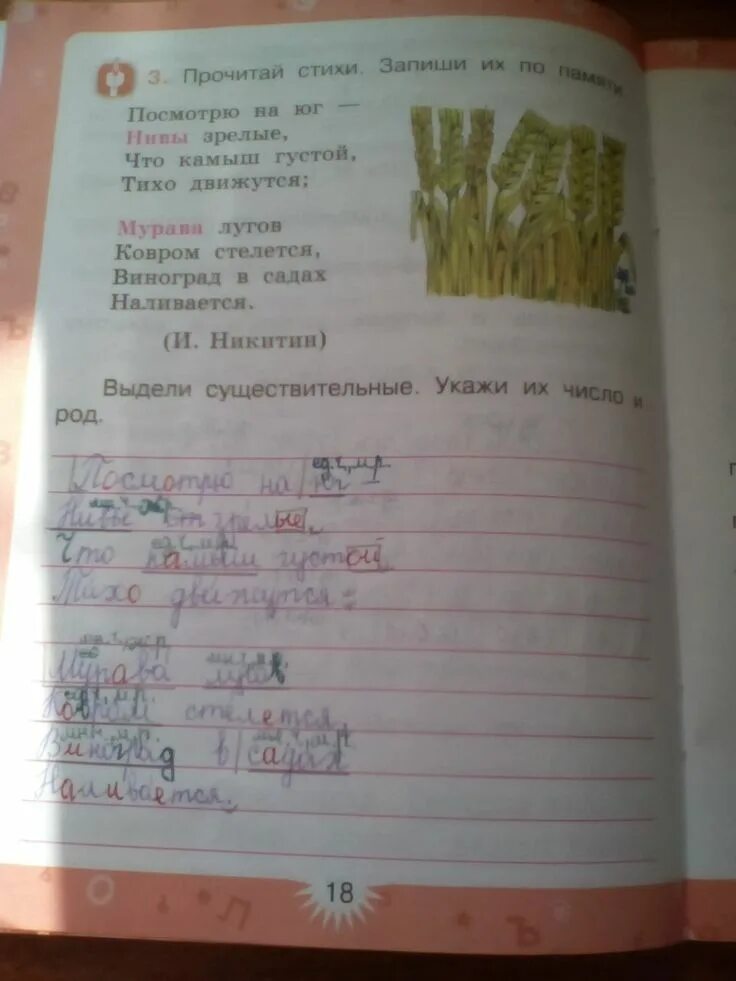 3. Прочитай стихи. Запиши их по памяти
Посмотрю на юг —
Нивы зрелые,
Что камыш густой,
Тихо движутся;
Мурава лугов
Ковром стелется,
Виноград в садах
Наливается.
(И. Никитин)
Выдели существительные. Укажи их число и
род.
ед.ч., м.р.
Посмотрю на юг
Нивы зрелые,
ед.ч., м.р.
Что камыш густой,
Тихо движутся;
Мурава лугов
Ковром стелется,
Виноград в садах
Наливается.
18